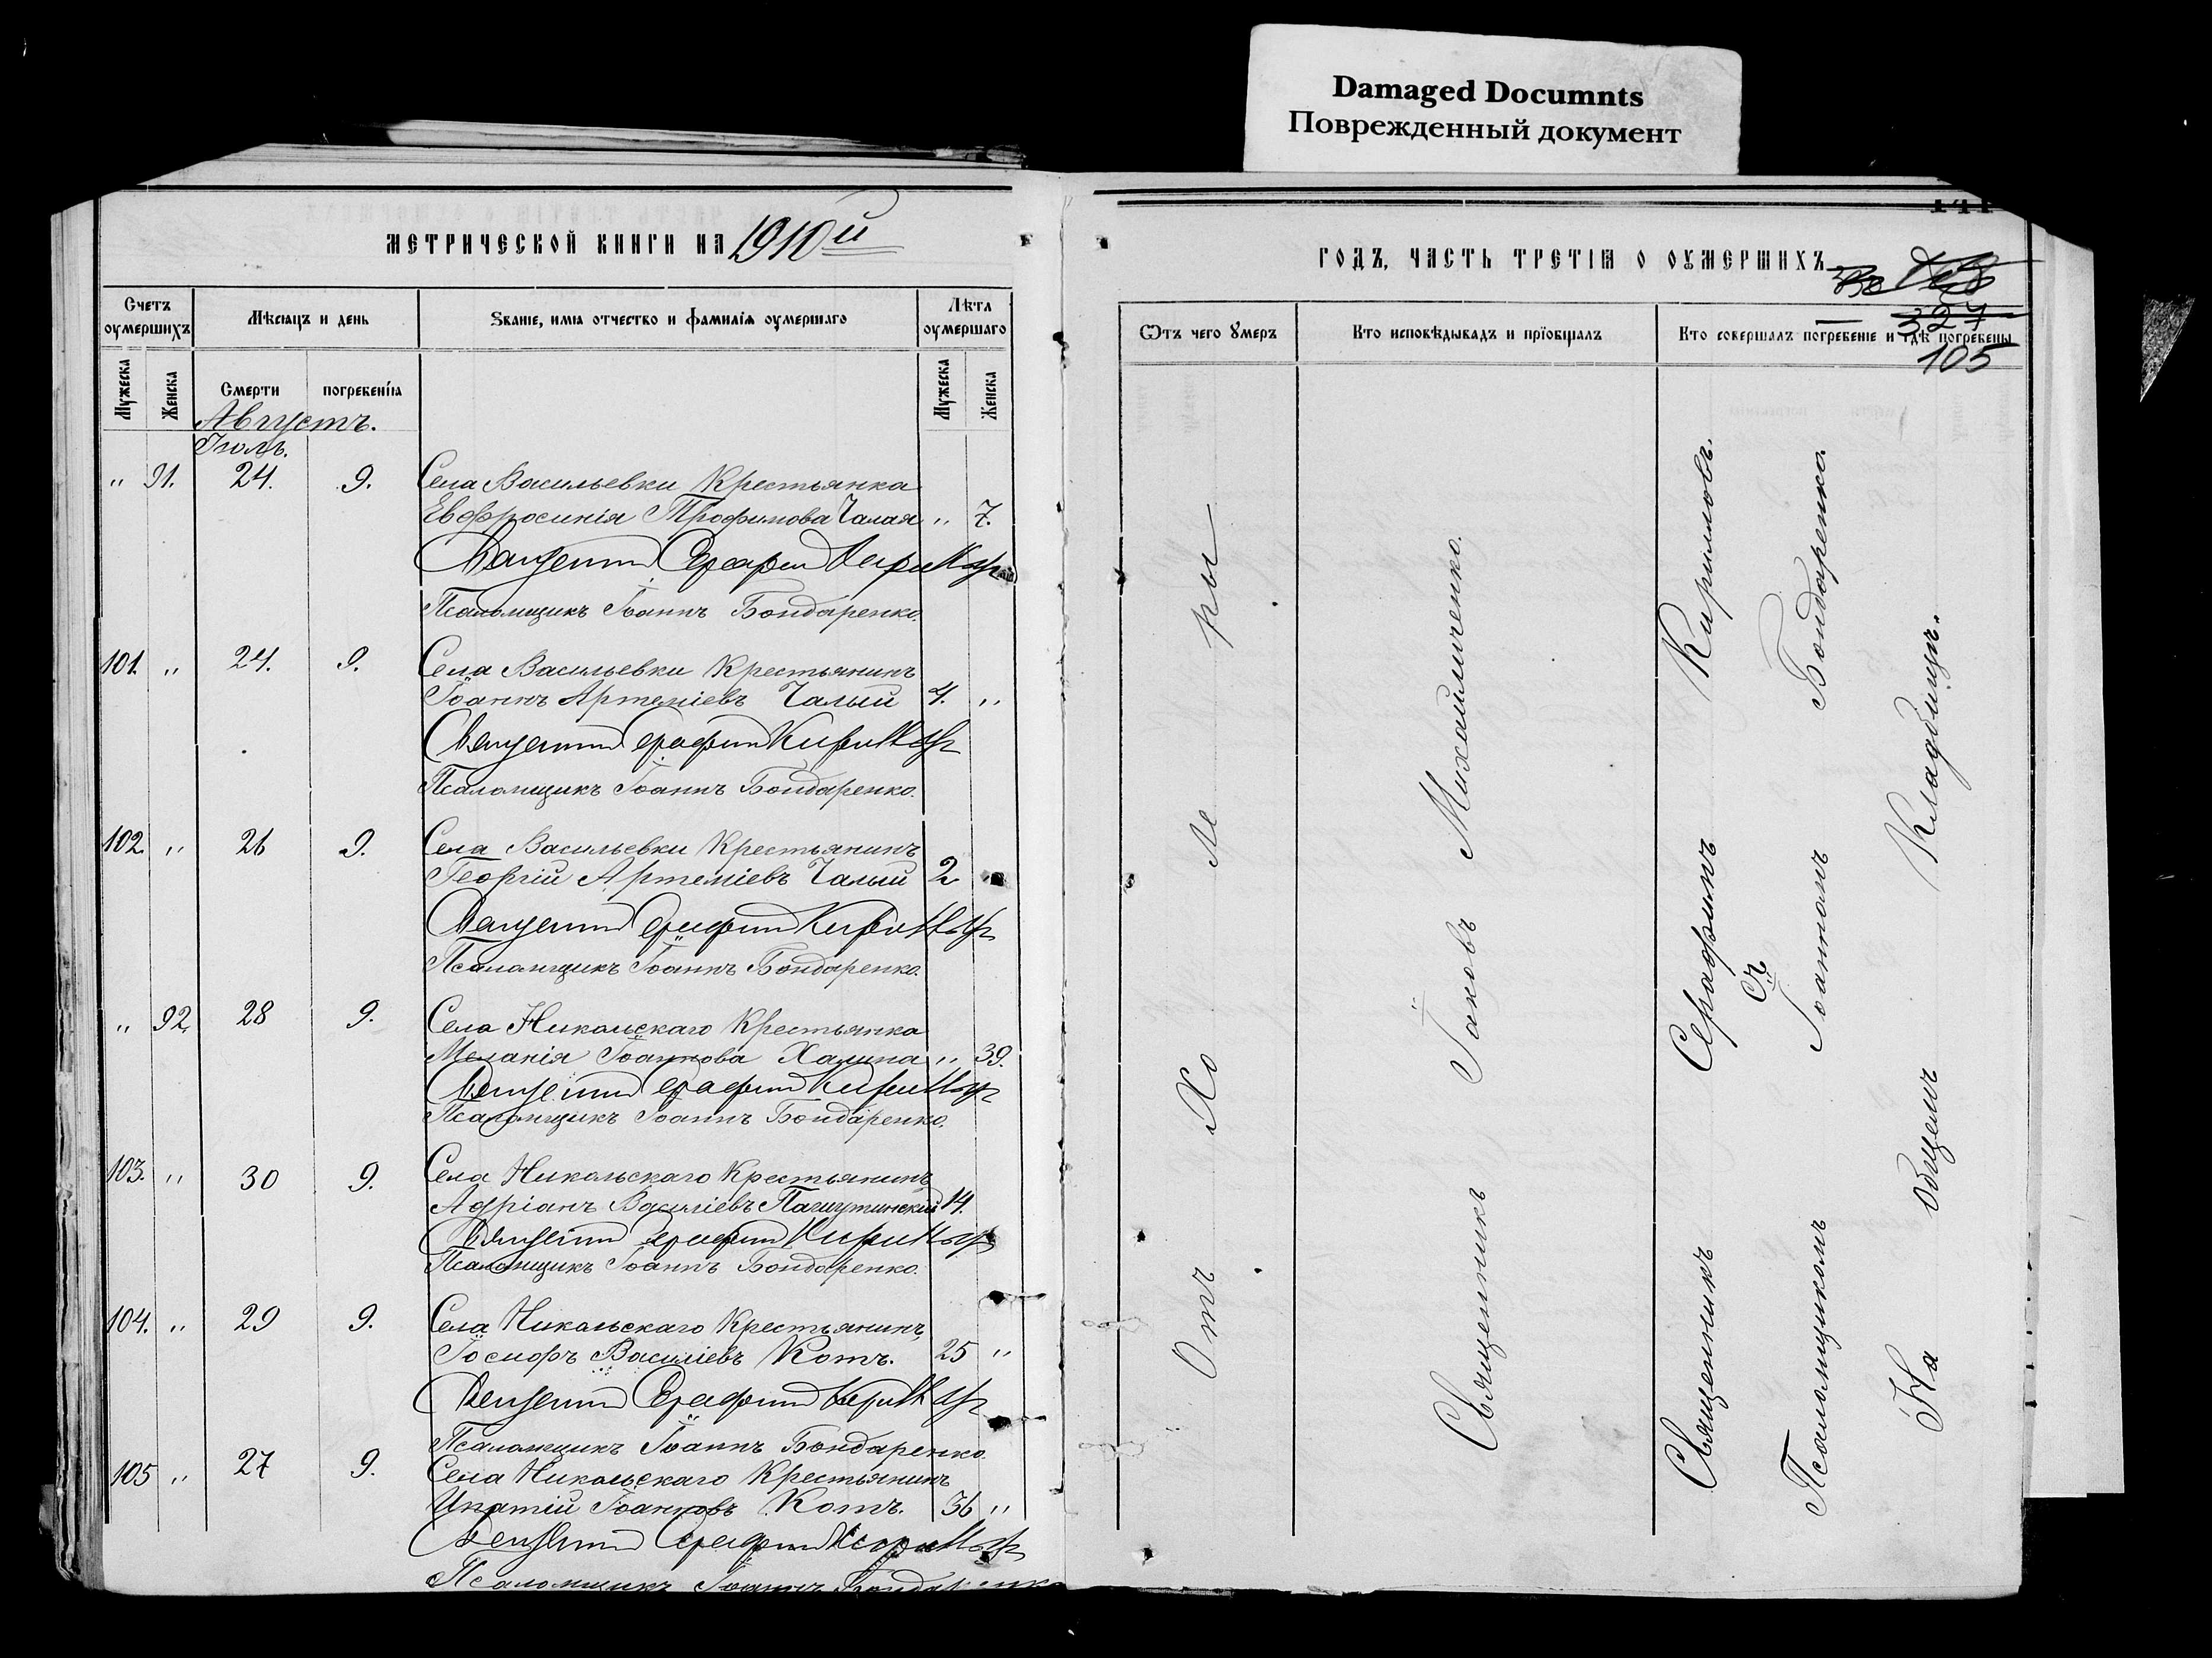 Damaged Documnts
Поврежденный документ
МЕТРИЧЕСКОЙ КНИГИ НА 1910й
Счетъ оумершихъ
Мѣсяцъ и день
Званіе, имя отчество и фамилія оумершаго
Лѣта оумершаго
Мужеска
Женска
Смерти
погребенія
Мужеска
Женска
Августъ.
Іюль.
" 91. 24. 9. Села Васильевки Крестьянка
Евфросинія Трофимова Чалая " 7.
Священникъ Серафимъ Кирилловъ
Псаломщикъ Іоаннъ Бондаренко.
101. " 24. 9. Села Васильевки Крестьянинъ
Іоаннъ Артеміевъ Чалый 4. "
Священникъ Серафимъ Кирилловъ
Псаломщикъ Іоаннъ Бондаренко.
102. " 26 9. Села Васильевки Крестьянинъ
Георгій Артеміевъ Чалый 2
Священникъ Серафимъ Кирилловъ
Псаломщикъ Іоаннъ Бондаренко.
" 92. 28 9. Села Никольскаго Крестьянка
Меланія Іоаннова Халина " 39.
Священникъ Серафимъ Кирилловъ
Псаломщикъ Іоаннъ Бондаренко.
103. " 30 9. Села Никольскаго Крестьянинъ
Адріанъ Василіевъ 14.
Священникъ Серафимъ Кирилловъ
Псаломщикъ Іоаннъ Бондаренко.
104. " 29 9. Села Никольскаго Крестьянинъ
Іосифъ Василіевъ Котъ. 25 "
Священникъ Серафимъ Кирилловъ
Псаломщикъ Іоаннъ Бондаренко.
105 " 27 9. Села Никольскаго Крестьянинъ
Ипатій Іоанновъ Котъ. 56 "
Священникъ Серафимъ Кирилловъ
Псаломщикъ Іоаннъ Бондаренко
ГОДЪ, ЧАСТЬ ТРЕТІЯ О ОУМЕРШИХЪ
327
105
Ѿтъ чего Умеръ
Кто исповѣдывалъ и пріобщалъ
Кто совершалъ погребеніе и гдѣ погребены
Отъ Холеры
Священникъ Іаковъ Михайличенко.
Священникъ Серафимъ Кирилловъ.
съ
Псаломщикомъ Іоанномъ Бондаренко.
На Общемъ Кладбищѣ.